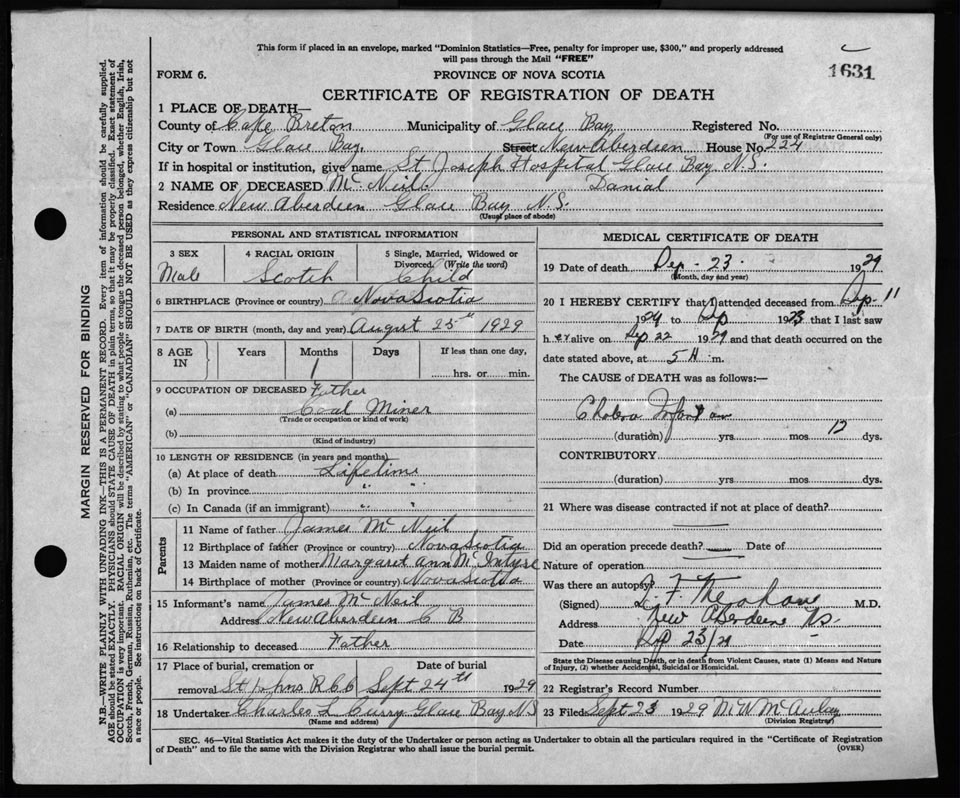 This form if placed in an envelope, marked "Dominion Statistics—Free, penalty for improper use, $300," and properly addressed
will pass through the Mail "FREE"
1631
FORM 6. PROVINCE OF NOVA SCOTIA
CERTIFICATE OF REGISTRATION OF DEATH
1 PLACE OF DEATH—
County of Cape Breton Municipality of Glace Bay Registered No.
(For use of Registrar General only)
City or Town Glace Bay Street New Aberdeen House No. 224
If in hospital or institution, give name St Joseph Hospital Glace Bay N.S.
2 NAME OF DECEASED Mc Neil Danial
Residence New Aberdeen Glace Bay N.S.
(Usual place of abode)
PERSONAL AND STATISTICAL INFORMATION
3 SEX 4 RACIAL ORIGIN 5 Single, Married, Widowed or
Divorced. (Write the word)
Male Scotch Child
6 BIRTHPLACE (Province or country) Nova Scotia
7 DATE OF BIRTH (month, day and year) August 25th 1929
8 AGE IN Years Months Days If less than one day,
1 hrs. or min.
9 OCCUPATION OF DECEASED Father
(a) Coal Miner
(Trade or occupation or kind of work)
(b)
(Kind of industry)
10 LENGTH OF RESIDENCE (in years and months)
(a) At place of death Lifetime
(b) In province " "
(c) In Canada (if an immigrant) " "
Parents
11 Name of father James Mc Neil
12 Birthplace of father (Province or country) Nova Scotia
13 Maiden name of mother Margaret Ann Mc Intyre
14 Birthplace of mother (Province or country) Nova Scotia
15 Informant's name James Mc Neil
Address New Aberdeen C B
16 Relationship to deceased Father
17 Place of burial, cremation or Date of burial
removal St Johns R C C Sept 24th 1929
18 Undertaker Charles L Curry Glace Bay N S
(Name and address)
MEDICAL CERTIFICATE OF DEATH
19 Date of death Sep. 23 1929
(Month, day and year)
20 I HEREBY CERTIFY that I attended deceased from Sep. 11
1929 to Sep 1923 that I last saw
h er alive on Sep 22 1929 and that death occurred on the
date stated above, at 5 m.
The CAUSE of DEATH was as follows:—
Cholera Infantum
(duration) yrs. mos. 12 dys.
CONTRIBUTORY
(duration) yrs. mos. dys.
21 Where was disease contracted if not at place of death?
Did an operation precede death? Date of
Nature of operation
Was there an autopsy?
(Signed) M.D.
Address New Aberdeen NS
Date Sep 23/29
State the Disease causing Death, or in death from Violent Causes, state (1) Means and Nature
of Injury, (2) whether Accidental, Suicidal or Homicidal.
22 Registrar's Record Number
23 Filed Sept 23 1929 McAulay
(Division Registrar)
SEC. 46—Vital Statistics Act makes it the duty of the Undertaker or person acting as Undertaker to obtain all the particulars required in the "Certificate of Registration
of Death" and to file the same with the Division Registrar who shall issue the burial permit. (OVER)
MARGIN RESERVED FOR BINDING
N.B.—WRITE PLAINLY WITH UNFADING INK—THIS IS A PERMANENT RECORD. Every item of information should be carefully supplied.
AGE should be stated EXACTLY. PHYSICIANS should STATE CAUSE OF DEATH in plain terms, so that it may be properly classified. Exact statement of
OCCUPATION is very important. RACIAL ORIGIN will be described by stating to what people or tongue the deceased person belonged, whether English, Irish,
Scotch, French, German, Russian, Ruthenian, etc. The terms "AMERICAN" or "CANADIAN" SHOULD NOT BE USED as they express citizenship but not
a race or people. See instructions on back of Certificate.